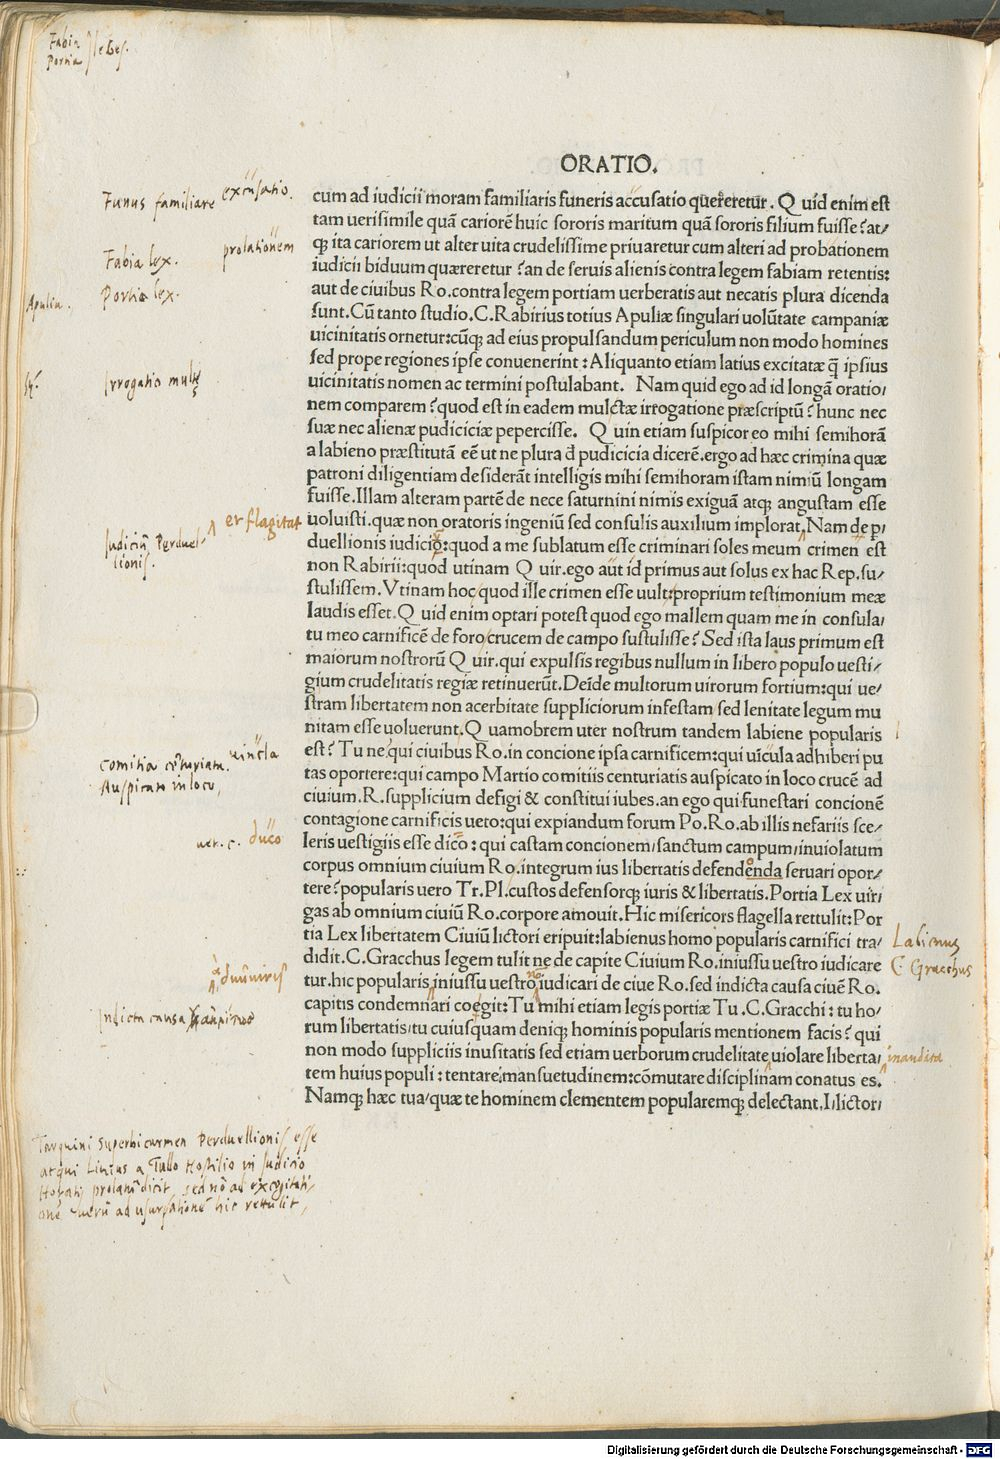 Fabia
Portia } leges.
ORATIO.
Funus familiare
excusatio.
prolationem
Fabia lex.
Portia lex.
Apulia.
Irrogatio mulctę
et flagitat
Judiciū Perduel-
lionis.
comitia cēturiata.
uincla
Auspicato in loco,
uer. c. duco
a duūuiris
Indicta causa
cum ad iudicii moram familiaris funeris accusatio quereretur. Quid enim est
tam uerisimile quā cariorē huic sororis maritum quā sororis filium fuisse? at/
q; ita cariorem ut alter uita crudelissime priuaretur cum alteri ad probationem
iudicii biduum quæreretur? an de seruis alienis contra legem fabiam retentis:
aut de ciuibus Ro. contra legem portiam uerberatis aut necatis plura dicenda
sunt. Cū tanto studio. C. Rabirius totius Apuliæ singulari uolūtate campaniæ
uicinitatis ornetur: cūq; ad eius propulsandum periculum non modo homines
sed prope regiones ipse conuenerint: Aliquanto etiam latius excitatæ q̄ ipsius
uicinitatis nomen ac termini postulabant. Nam quid ego ad id longā oratio/
nem comparem? quod est in eadem mulctæ irrogatione præscriptū? hunc nec
suæ nec alienæ pudiciciæ pepercisse. Quin etiam suspicor eo mihi semihorā
a labieno præstitutā eē ut ne plura d̄ pudicicia dicerē. ergo ad hæc crimina quæ
patroni diligentiam desiderāt intelligis mihi semihoram istam nimiū longam
fuisse. Illam alteram partē de nece saturnini nimis exiguā atq; angustam esse
uoluisti. quæ non oratoris ingeniū sed consulis auxilium implorat. Nam de p/
duellionis iudicio: quod a me sublatum esse criminari soles meum crimen est
non Rabirii: quod utinam Q uir. ego aut id primus aut solus ex hac Rep. su/
stulissem. Vtinam hoc quod ille crimen esse uult: proprium testimonium meæ
laudis esset. Quid enim optari potest quod ego mallem quam me in consula/
tu meo carnificē de foro crucem de campo sustulisse? Sed ista laus primum est
maiorum nostrorū Q uir. qui expulsis regibus nullum in libero populo uesti/
gium crudelitatis regiæ retinuerūt. Deīde multorum uirorum fortium: qui ue/
stram libertatem non acerbitate suppliciorum infestam sed lenitate legum mu
nitam esse uoluerunt. Quamobrem uter nostrum tandem labiene popularis
est? Tu ne qui ciuibus Ro. in concione ipsa carnificem: qui uīcula adhiberi pu
tas oportere: qui campo Martio comitiis centuriatis auspicato in loco crucē ad
ciuium. R. supplicium defigi & constitui iubes. an ego qui funestari concionē
contagione carnificis ueto: qui expiandum forum Po. Ro. ab illis nefariis sce/
leris uestigiis esse dico: qui castam concionem, sanctum campum, inuiolatum
corpus omnium ciuium Ro. integrum ius libertatis defendenda seruari opor/
tere? popularis uero Tr. Pl. custos defensorq; iuris & libertatis. Portia Lex uir/
gas ab omnium ciuiū Ro. corpore amouit. Hic misericors flagella rettulit: Por
tia Lex libertatem Ciuiū lictori eripuit: labienus homo popularis carnifici tra/
didit. C. Gracchus legem tulit ne de capite Ciuium Ro. iniussu uestro iudicare
tur. hic popularis iniussu uestro iudicari de ciue Ro. sed indicta causa ciuē Ro.
capitis condemnari coegit: Tu mihi etiam legis portiæ Tu. C. Gracchi: tu ho/
rum libertatis: tu cuiusquam deniq; hominis popularis mentionem facis? qui
non modo suppliciis inusitatis sed etiam uerborum crudelitate uiolare liberta/
tem huius populi: tentare mansuetudinem: cōmutare disciplinam conatus es.
Namq; hæc tua quæ te hominem clementem popularemq; delectant. I lictor/
Labienus
C Gracchus
inaudita
Tarquini Superbi carmen Perduellionis esse
atqui Liuius a Tullo Hostilio in Judicio
Horatii prolatū dicit, sed nō ad excogitati-
onē uerū ad usurpationē hic rettulit,
Digitalisierung gefördert durch die Deutsche Forschungsgemeinschaft - DFG